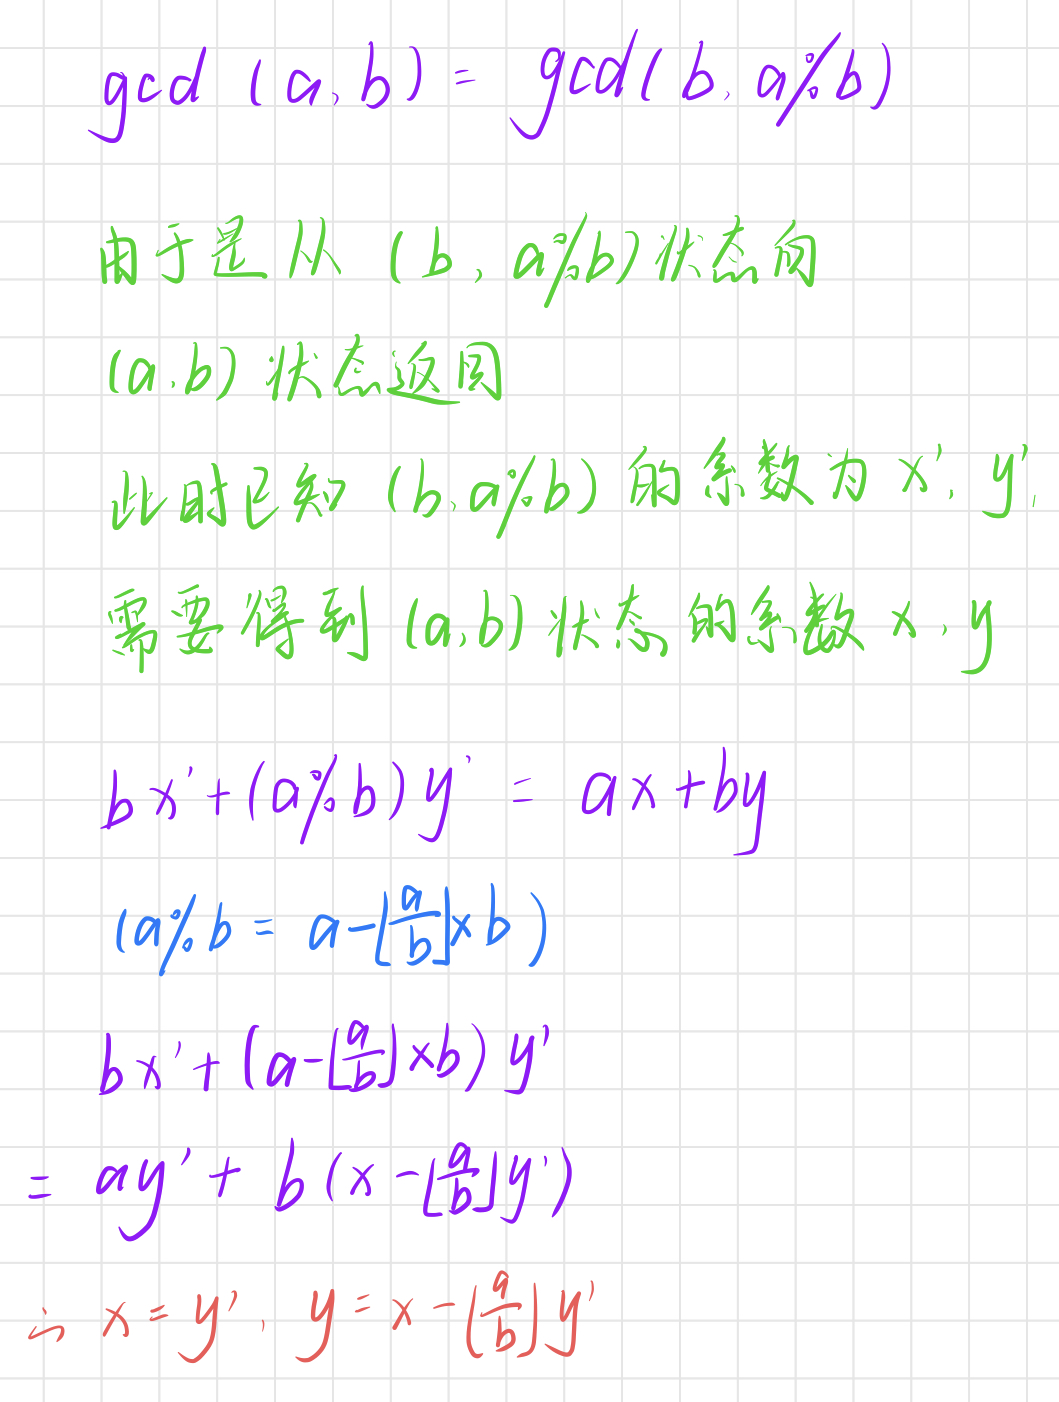 gcd (a,b) = gcd(b, a%b)
由于是从 (b, a%b)状态向
(a,b) 状态返回
此时已知 (b,a%b) 的系数为 x', y',
需要得到 (a,b) 状态的系数 x, y
bx'+(a%b)y' = ax+by
(a%b = a-⌊a/b⌋×b)
bx'+(a-⌊a/b⌋×b)y'
= ay' + b(x-⌊a/b⌋y')
∴ x=y', y=x-⌊a/b⌋y'